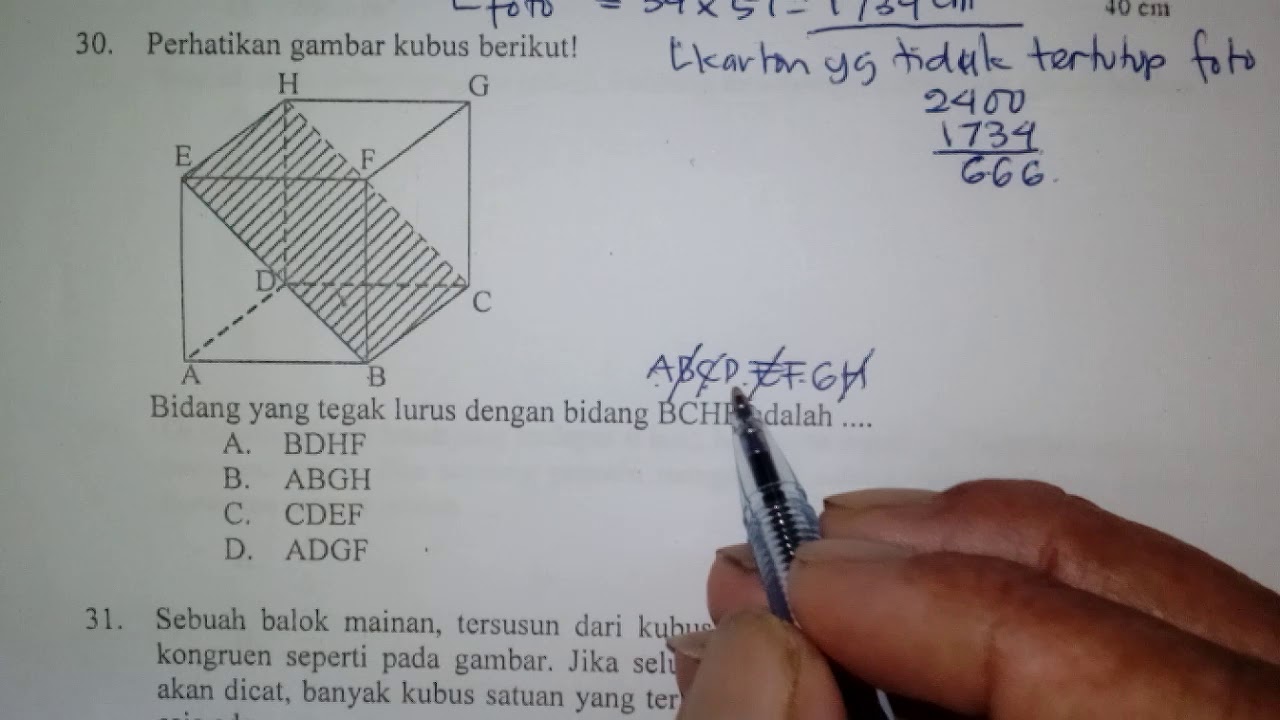 foto = 34 x 51 = 1734 cm
40 cm
30. Perhatikan gambar kubus berikut!
L karton yg tidak tertutup foto
2400
1734
666.
H
G
E
F
D
C
A
B
ABCD.EFGH
Bidang yang tegak lurus dengan bidang BCHE adalah ....
A. BDHF
B. ABGH
C. CDEF
D. ADGF
31. Sebuah balok mainan, tersusun dari kubus
kongruen seperti pada gambar. Jika selu
akan dicat, banyak kubus satuan yang ter